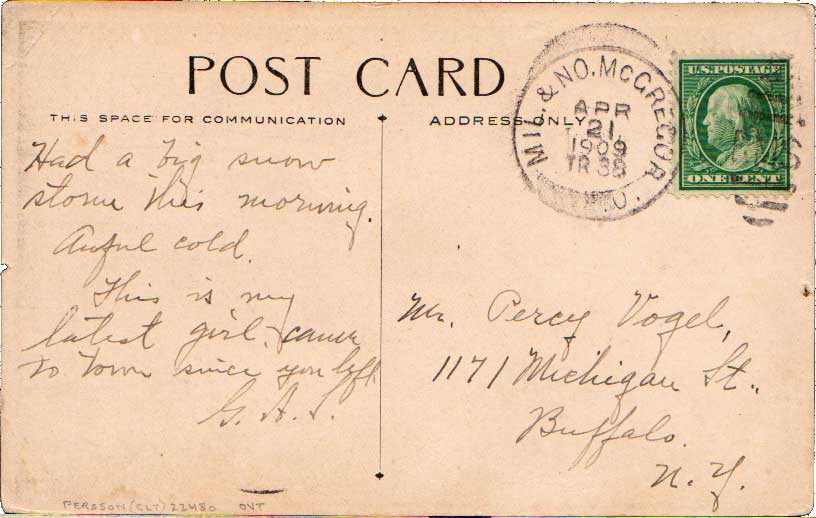 POST CARD
THIS SPACE FOR COMMUNICATION
ADDRESS ONLY
MIL. & NO. McGREGOR
R.P.O.
APR
21
1909
TR 38
U.S. POSTAGE
ONE CENT
Had a big snow
storm this morning.
Awful cold.
This is my
latest girl, came
to town since you left
G. A. S.
Mr. Percy Vogel,
1171 Michigan St.,
Buffalo.
N. Y.
PERSSON (CLT) 22480 OVT